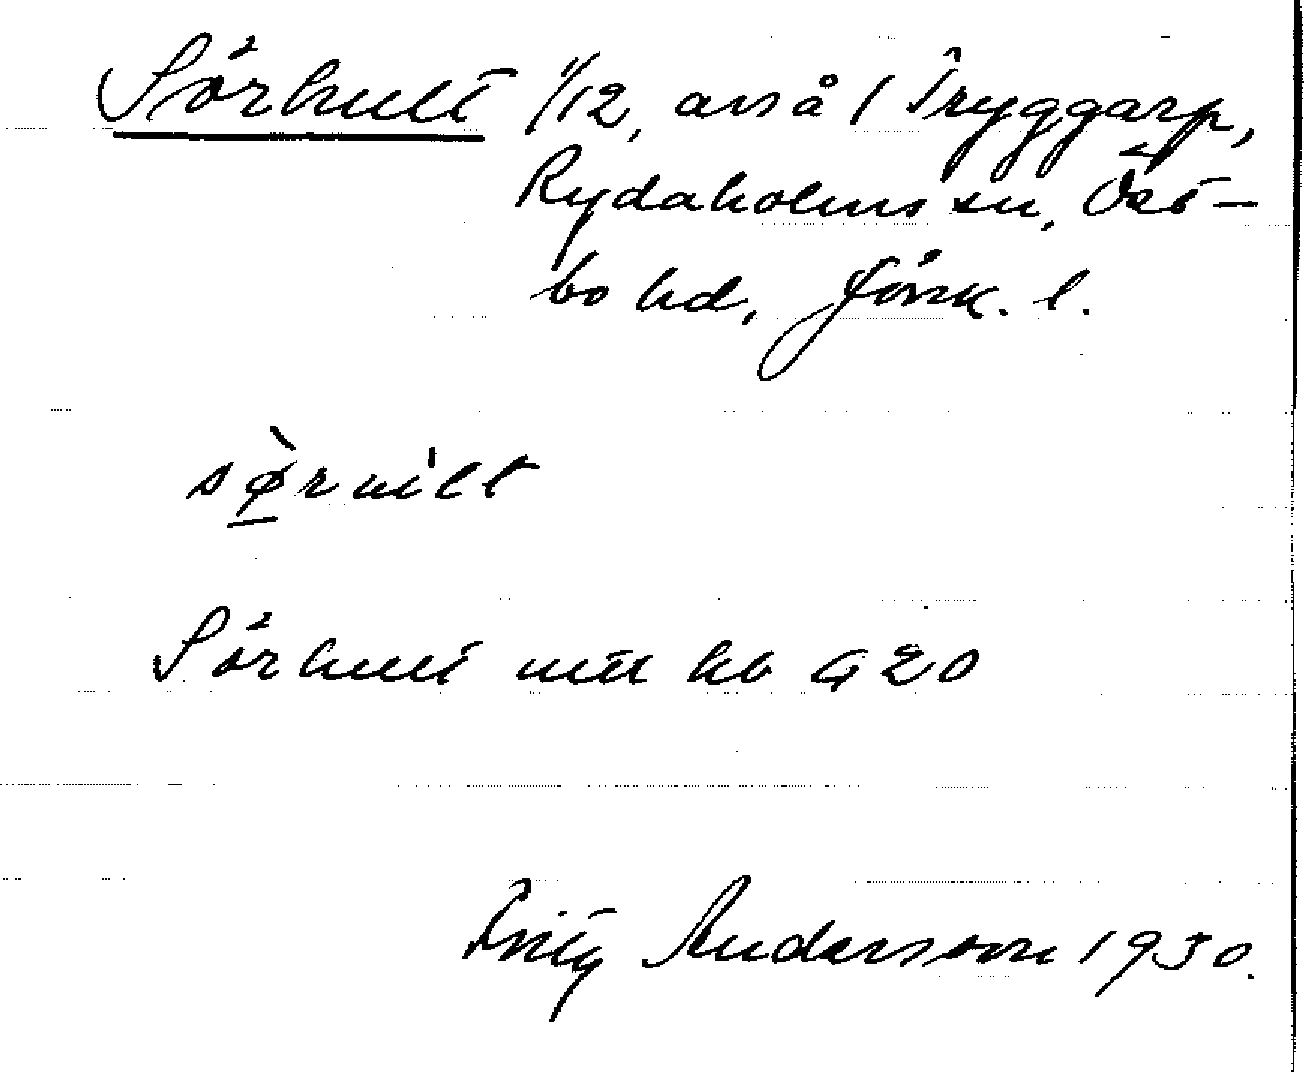 Sörhult 1/12, avs å 1 Tryggarp,
Rydaholms sn, Öst-
bo hd, Jönk. l.
Sörhult hb G 20
Fritz Andersson 1930.